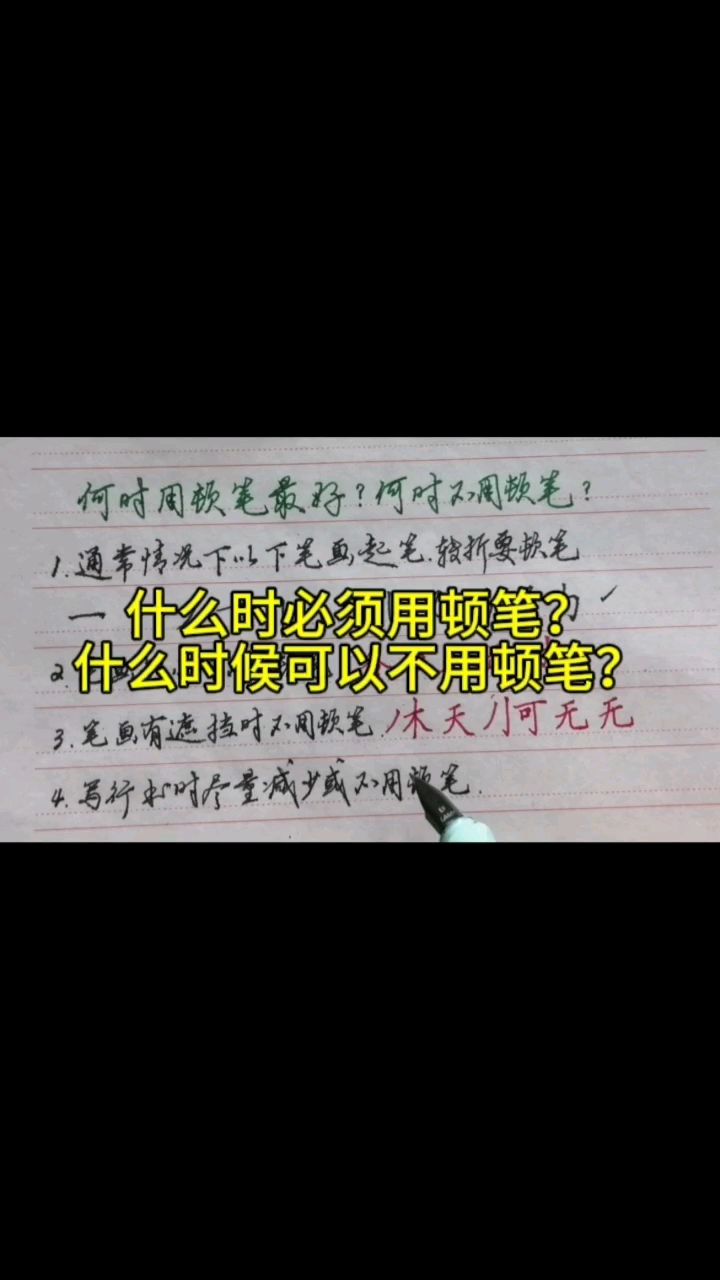 何时用顿笔最好？何时不用顿笔？
1.通常情况下以下笔画起笔.转折要顿笔
一
什么时必须用顿笔？
什么时候可以不用顿笔？
2.
3.笔画有遮挡时不用顿笔.丿木天亅可无无
4.写行书时尽量减少或不用顿笔.